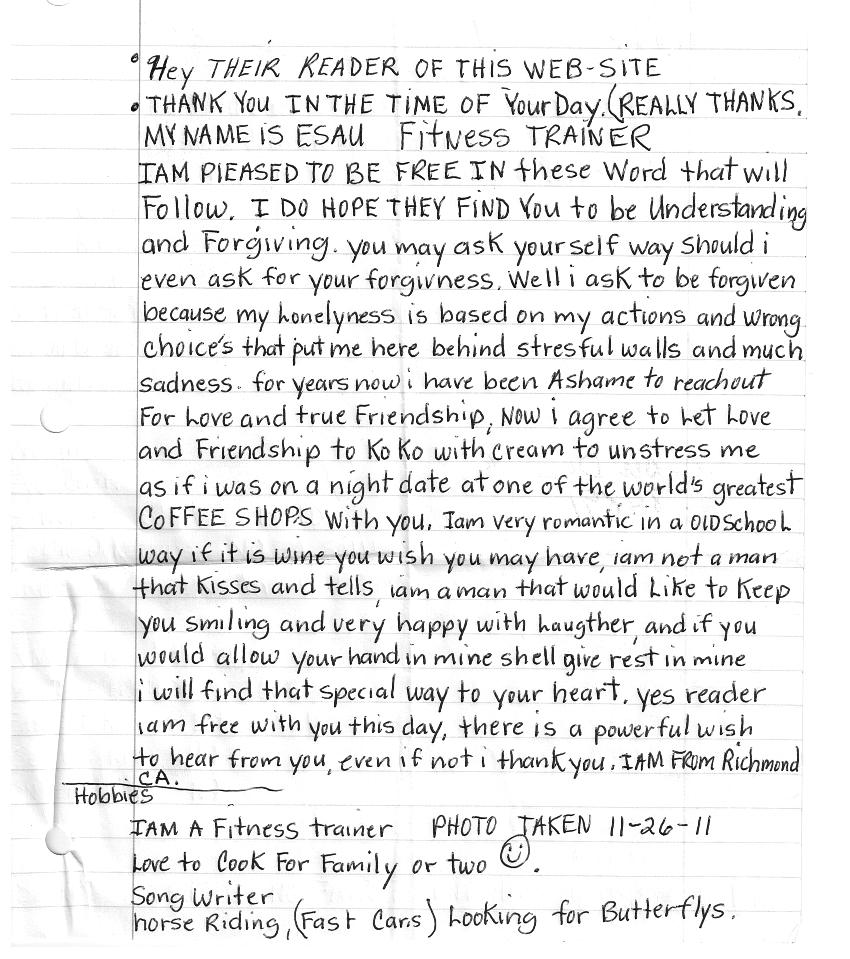 • Hey THEIR READER OF THIS WEB-SITE
• THANK You IN THE TIME OF Your Day. (REALLY THANKS.
MY NAME iS ESAU FitNess TRAINER
IAM PlEASED TO BE FREE IN these Word that will
Follow. I DO HOPE THEY FIND You to be Understanding
and Forgiving. you may ask yourself way should i
even ask for your forgivness. Well i ask to be forgiven
because my Lonelyness is based on my actions and wrong
choice's that put me here behind stresful walls and much
sadness. for years now i have been Ashame to reachout
For Love and true Friendship, Now i agree to Let Love
and Friendship to Ko Ko with cream to unstress me
as if i was on a night date at one of the world's greatest
COFFEE SHOPS With you. Iam very romantic in a OlD SchooL
way if it is wine you wish you may have, iam not a man
that Kisses and tells, iam a man that would Like to Keep
you smiling and very happy with Laugther, and if you
would allow your hand in mine shell give rest in mine
i will find that special way to your heart. yes reader
iam free with you this day, there is a powerful wish
to hear from you, even if not i thank you. IAM FROM Richmond
CA.
Hobbies
IAM A Fitness trainer PHOTO TAKEN 11-26-11
Love to Cook For Family or two ☺.
Song Writer
horse Riding, (Fast Cars) Looking for Butterflys.